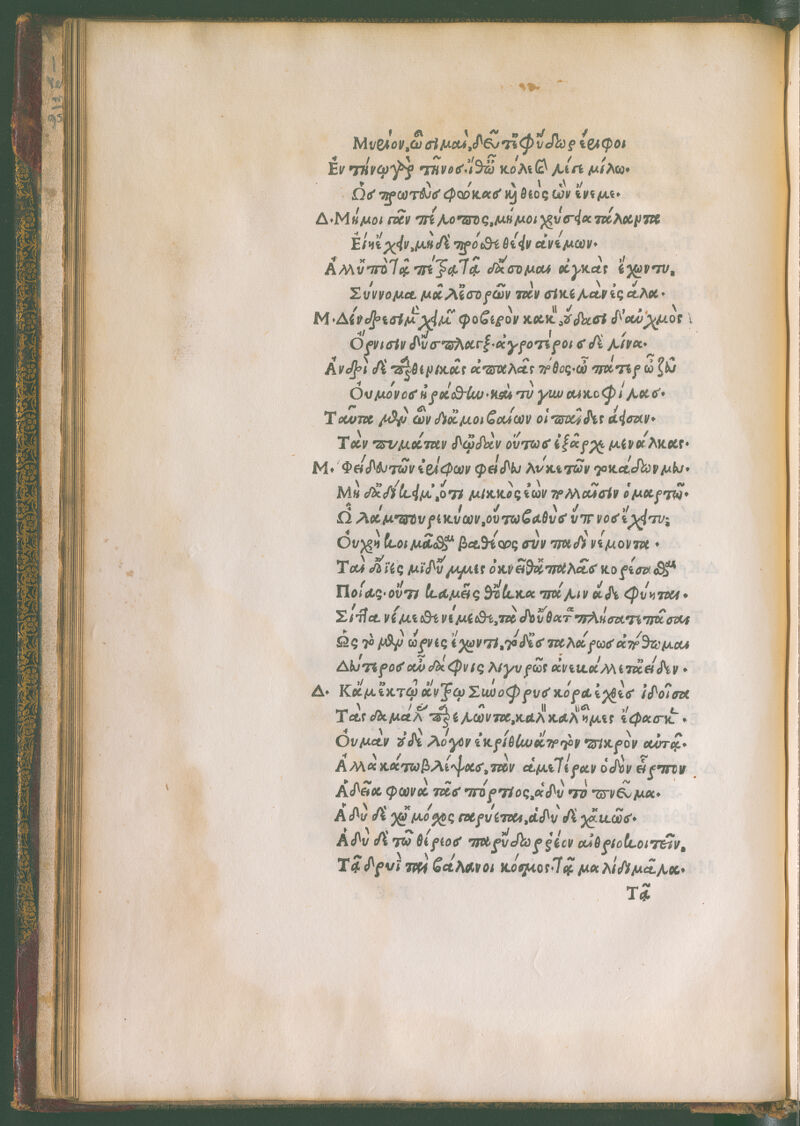 Μυρίον, ὦ σιμαὶ, δεῦτ' ἐφ' ὕδωρ ἔριφοι
Ἐν τήνῳ γὰρ τῆνος· ἴθ' ὦ κόλε καὶ λέγε μίλω·
Ὡς πρωτεὺς φώκας καὶ θεὸς ὢν ἔνεμε·
Δ· Μή μοι γᾶν πέλοπος, μή μοι χρύσεια τάλαντα
Εἴη ἔχειν, μηδὲ πρόσθε θέειν ἀνέμων·
Ἀλλ' ὑπὸ τᾷ πέτρᾳ τᾷδ' ᾄσομαι ἀγκὰς ἔχων τυ,
Σύννομα μᾶλ' ἐσορῶν τὰν σικελὰν ἐς ἅλα·
Μ· Δένδρεσι μὲν χειμὼν φοβερὸν κακὸν, ὕδασι δ' αὐχμὸς
Ὄρνισιν δ' ὕσπλαγξ· ἀγροτέροις δὲ λίνα·
Ἀνδρὶ δὲ παρθενικᾶς ἁπαλᾶς πόθος· ὦ πάτερ ὦ ζεῦ
Οὐ μόνος ἠράσθην· καὶ τὺ γυναικοφίλας·
Ταῦτα μὲν ὦν δι' ἀμοιβαίων οἱ παῖδες ἄεισαν·
Τὰν πυμάταν δ' ᾠδὰν οὕτως ἐξᾶρχε μενάλκας·
Μ· Φείδευ τῶν ἐρίφων φείδευ λύκε τῶν τοκάδων μευ·
Μὴ δ' ἀδίκει μ', ὅτι μικκὸς ἐὼν πολλαῖσιν ὁμαρτῶ·
Ὦ λάμπουρι κύων, οὕτω βαθὺς ὕπνος ἔχει τυ;
Οὐ χρὴ κοιμᾶσθαι βαθέως σὺν παιδὶ νέμοντα·
Ταὶ δ' ὄϊες μὴδ' ὔμμες ὀκνεῖθ' ἁπαλᾶς κορέσασθαι
Ποίας· οὔτι καμεῖς θ' ὅκκα πάλιν ἅδε φύηται·
Σίττα νέμεσθε νέμεσθε, τὰ δ' οὔθατα πλήσατε πᾶσαι
Ὡς τὸ μὲν ὥρνες ἔχωντι, τὸ δ' ἐς ταλάρως ἀπόθωμαι
Δεύτερος αὖ δάφνις λιγυρῶς ἀνεκάλλετ' ἀείδεν·
Δ· Κἄμ' ἐκ τῶ ἄντρω σύνοφρυς κόρα ἐχθὲς ἰδοῖσα
Τὰς δαμάλας παρελῶντα, καλὸν καλὸν ἦμες ἔφασκεν·
Οὐ μὰν οὐδὲ λόγον ἐκρίθην ἄπο τὸν πικρὸν αὐτᾷ·
Ἀλλὰ κάτω βλέψας, τὰν ἁμετέραν ὁδὸν εἷρπον
Ἁδεῖα φωνὰ τᾶς πόρτιος, ἁδὺ τὸ πνεῦμα·
Ἁδὺ δὲ χὠ μόσχος γαρύεται, ἁδὺ δὲ χἀ κῶς·
Ἁδὺ δὲ τῶ θέριος παρ' ὕδωρ ῥέεν αἰθριοκοιτεῖν,
Τᾷ δρυῒ ταὶ βάλανοι κόσμος· τᾷ μαλίδι μᾶλα·
Τᾷ